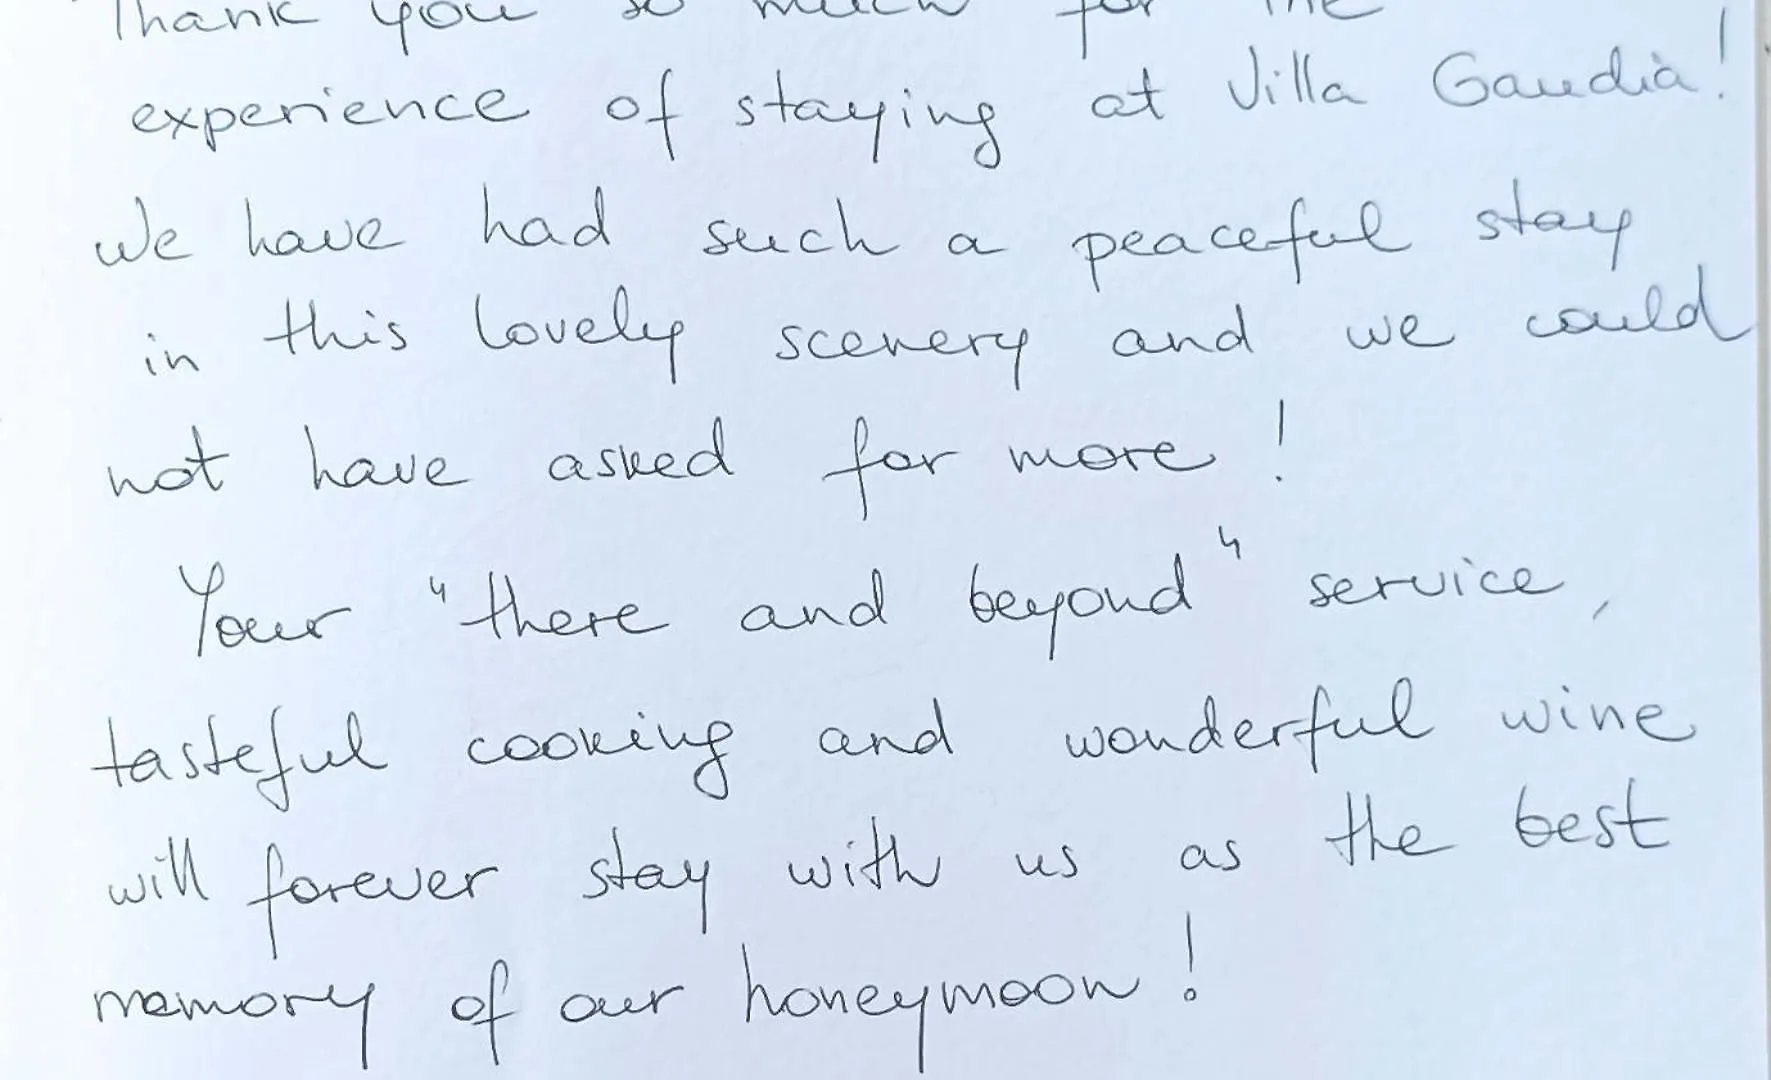 Thank you so much for the
experience of staying at Villa Gaudia!
We have had such a peaceful stay
in this lovely scenery and we could
not have asked for more!
Your "there and beyond" service,
tasteful cooking and wonderful wine
will forever stay with us as the best
memory of our honeymoon!